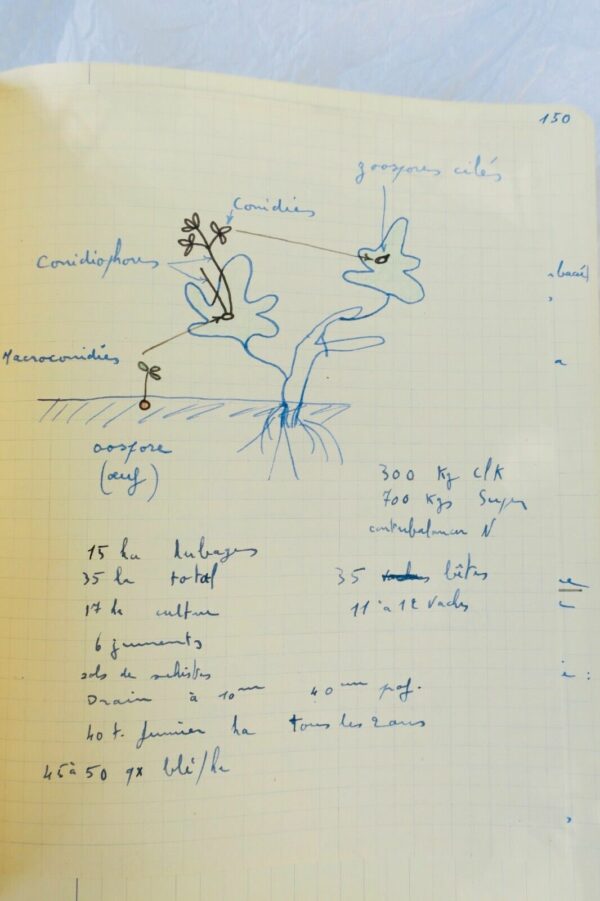 150
zoospores ciliés
Conidies
Conidiophores
Macroconidies
oospore
(œuf)
300 Kg ClK
700 Kgs Super
contrebalancer N
15 ha herbages
35 ha total
35 vaches bêtes
17 ha culture
11 à 12 vaches
6 juments
sols de schistes
Drain à 10 m 40 cm prof.
40 t. fumier ha tous les 2 ans
45 à 50 qx blé/ha